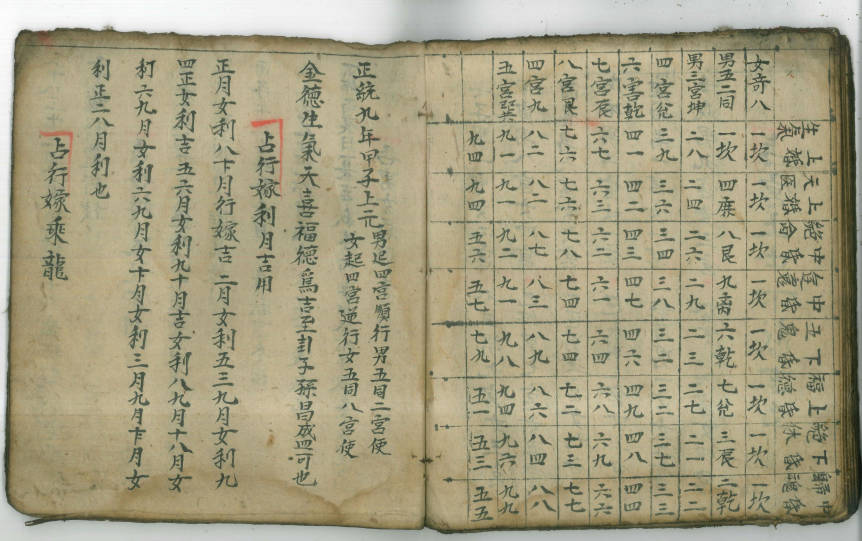 生上天上絕中遊中五下福上絕下歸中
氣婚医婚命婚魂婚鬼婚德婚休婚魂婚
女奇八 一坎 一坎 一坎 一坎 一坎 一坎 一坎 一坎
男五二同 一坎 四 八艮 九离 六乾 七兌 三辰 二乾
男三宮坤 二八 二四 二六 二九 二三 二七 二一 二二
四宮兌 三九 三六 三四 三八 三二 三二 三七 三三
六宮乾 四一 四二 四三 四七 四六 四九 四八 四四
七宮辰 六七 六三 六二 六一 六四 六八 六九 六六
八宮艮 七六 七六 七八 七四 七四 七二 七三 七七
四宮九 八二 八二 八七 八三 八九 八六 八四 八八
五宮巽 九一 九一 九二 九一 九八 九四 九六 九九
九四 九四 五六 五七 七九 五一 五三 五五
正統九年甲子上元男起四宮順行男五同二宮使
女起四宮逆行女五同八宮使
金德生氣天喜福德爲吉至卦子孫昌盛可也
占行嫁利月吉用
正月女利八卞月行嫁吉 二月女利五三九月女利九
四正女利吉 五六月女利九十月吉女利八九月十八月女
利 六九月女利六九月女十月女利三月九月卞月女
利正二八月利也
占行嫁乘龍